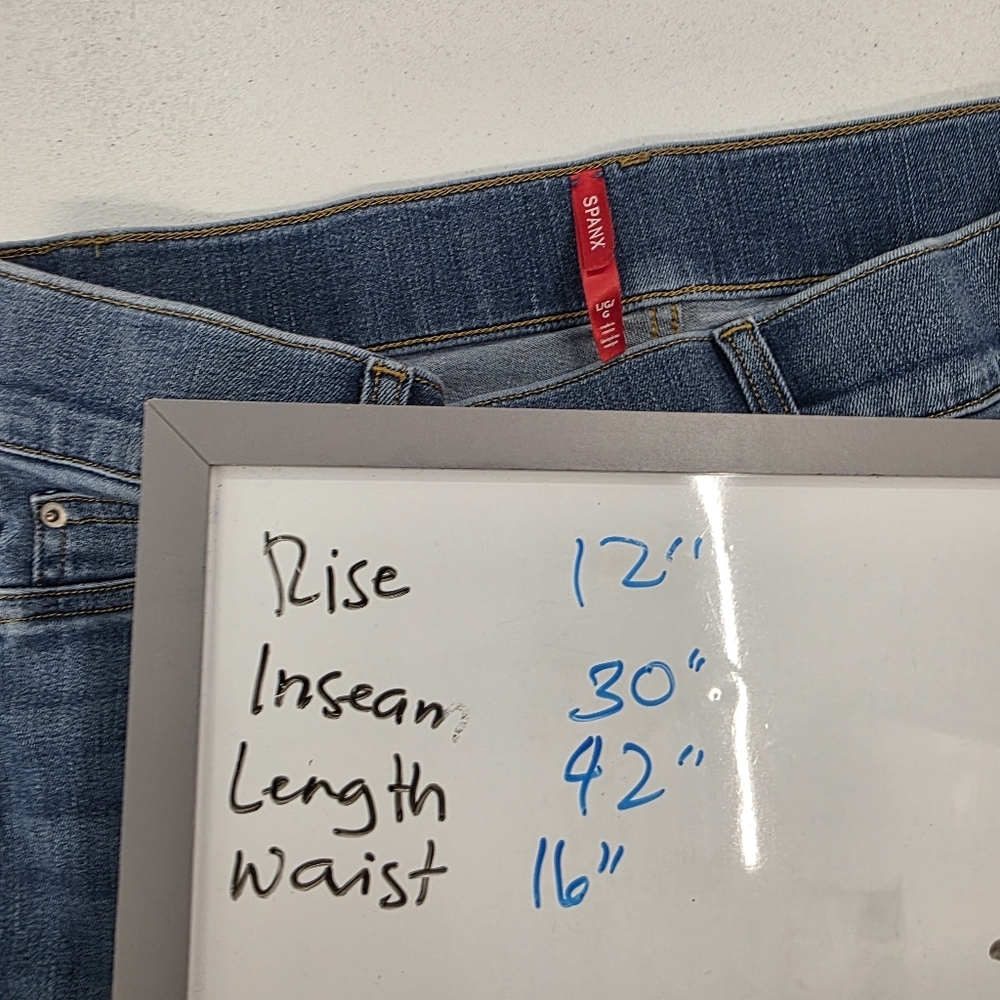 SPANX
L/G/
G
Rise 12"
Inseam 30"
Length 42"
Waist 16"